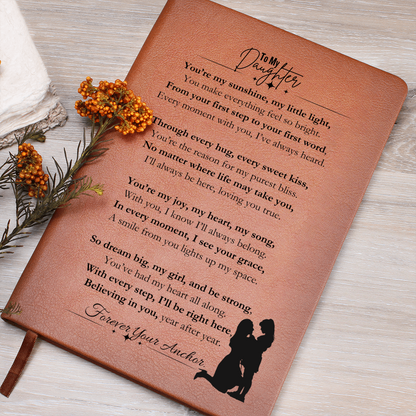 To My
Daughter
You're my sunshine, my little light,
You make everything feel so bright.
From your first step to your first word,
Every moment with you, I've always heard.
Through every hug, every sweet kiss,
You're the reason for my purest bliss.
No matter where life may take you,
I'll always be here, loving you true.
You're my joy, my heart, my song,
With you, I know I'll always belong.
In every moment, I see your grace,
A smile from you lights up my space.
So dream big, my girl, and be strong,
You've had my heart all along.
With every step, I'll be right here,
Believing in you, year after year.
Forever Your Anchor.